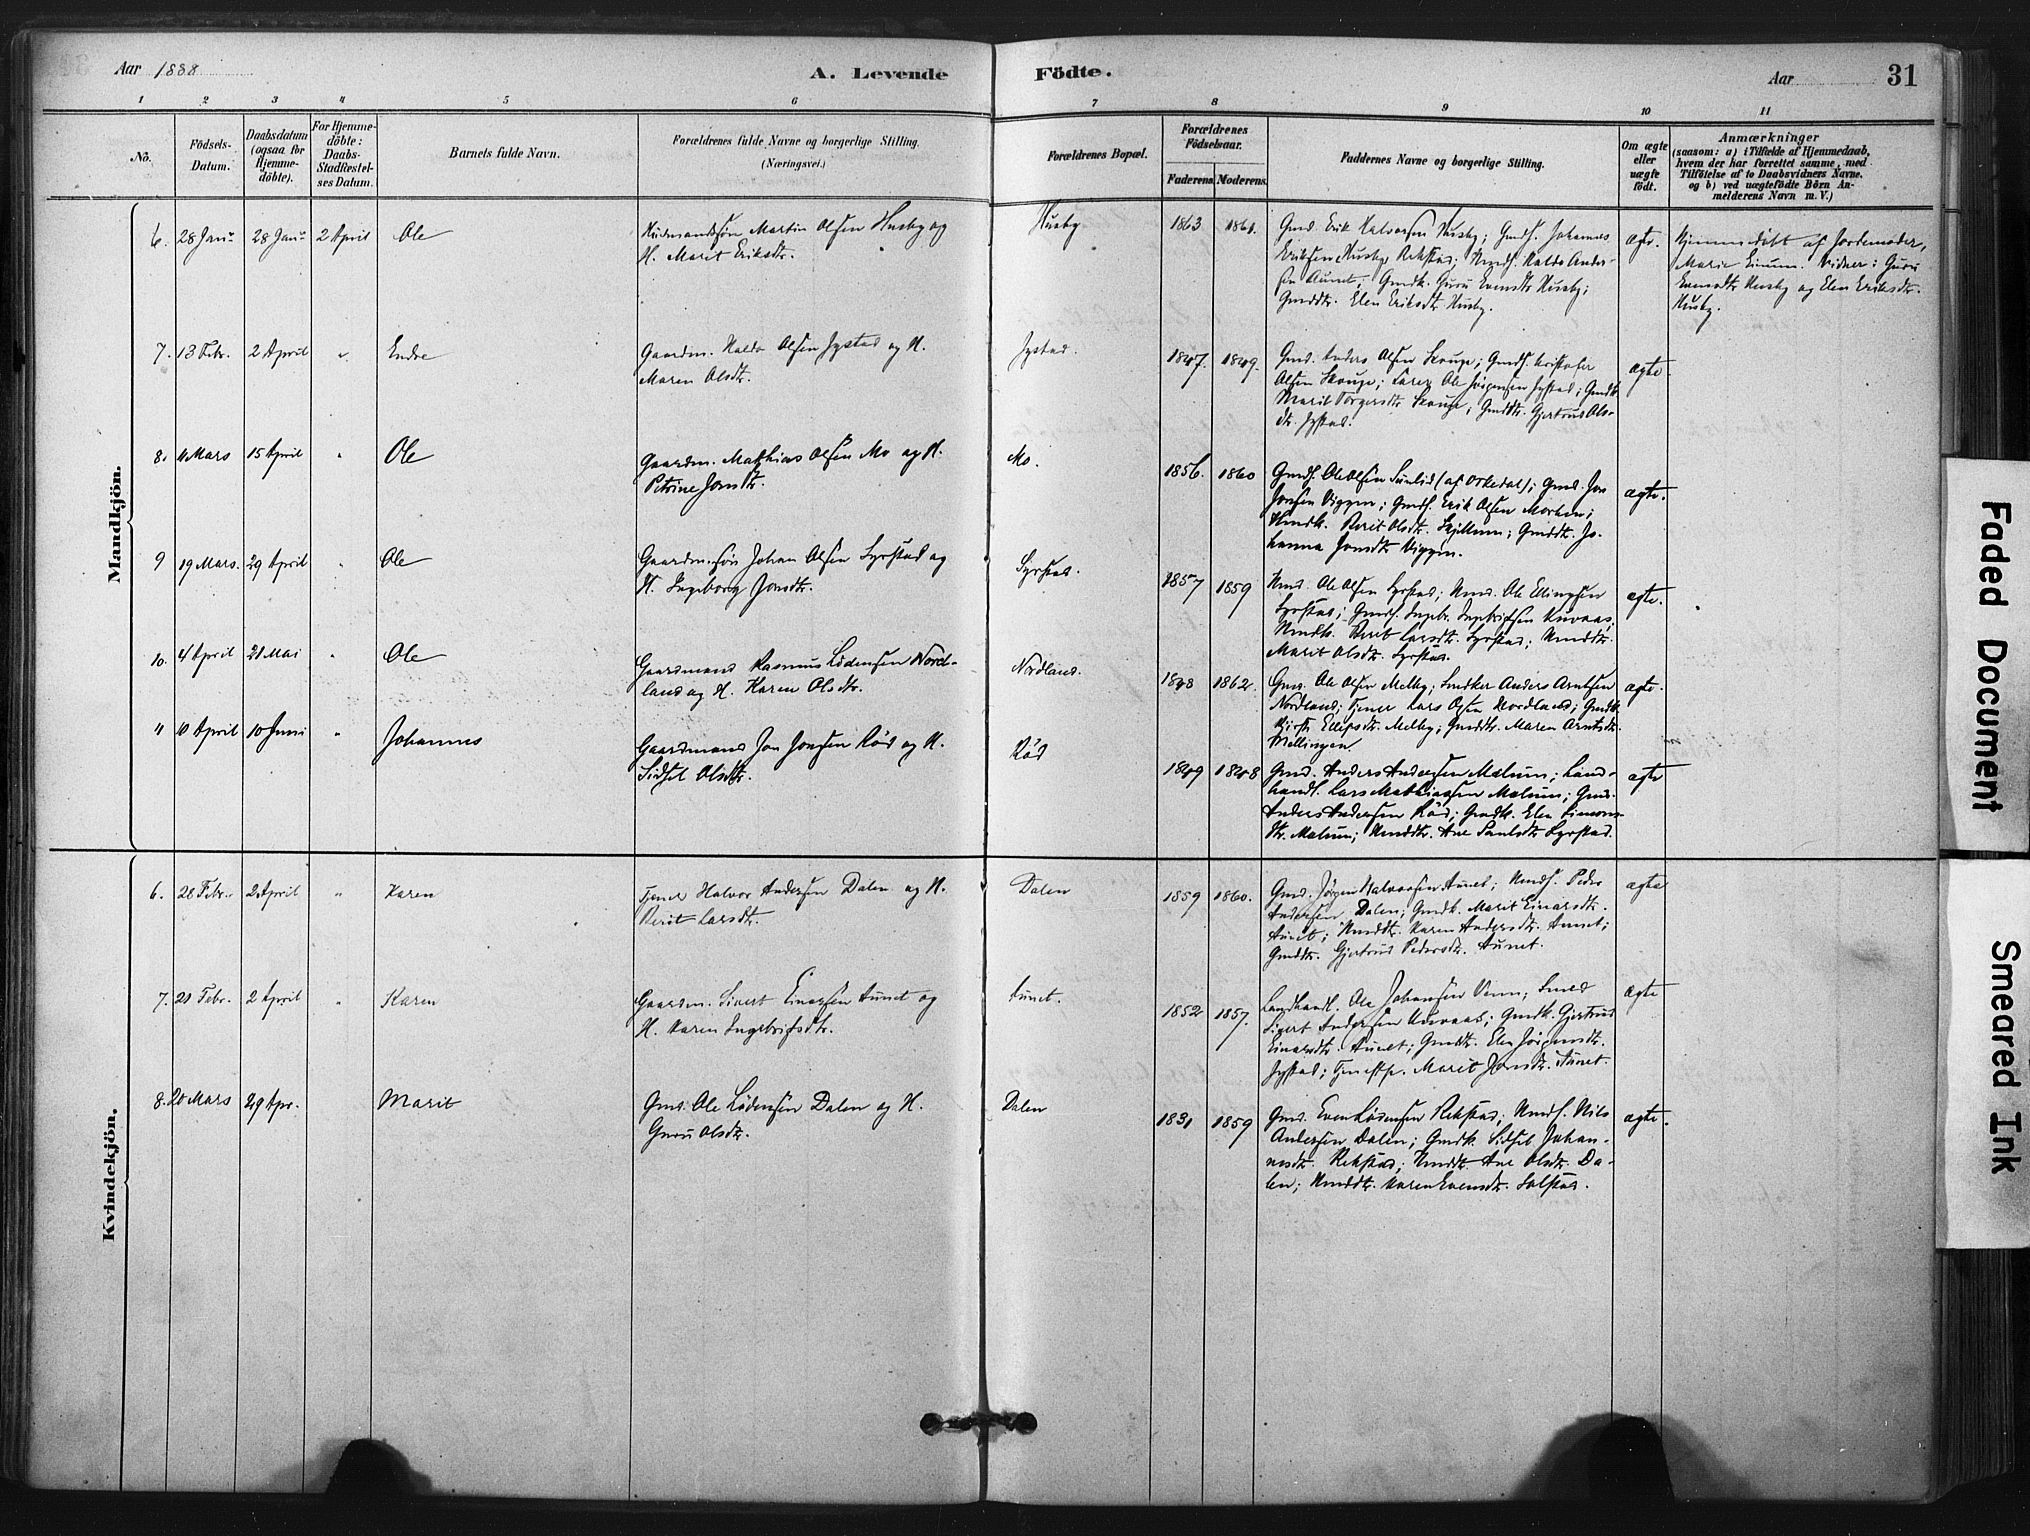 Aar 1888
A. Levende
Födte.
Aar
31
1 2 3 4 5 6 7 8 9 10 11
No.
Födsels-
Datum.
Daabsdatum
(ogsaa for
Hjemme-
döbte).
For Hjemme-
döbte:
Daabs-
Stadfæstel-
ses Datum.
Barnets fulde Navn.
Forældrenes fulde Navne og borgerlige Stilling.
(Næringsvei.)
Forældrenes Bopæl.
Forældrenes
Födselsaar.
Faderens. Moderens.
Faddernes Navne og borgerlige Stilling.
Om ægte
eller
uægte
födt.
Anmærkninger
(saasom: a) i Tilfælde af Hjemmedaab,
hvem der har forrettet samme, med
Tilföielse af to Daabsvidners Navne.
og b) ved uægtefödte Börn An-
melderens Navn m. V.)
Mandkjön.
6. 28 Janr 28 Janr 2 April Ole
Husmandssön Martin Olsen Husby og
H. Marit Eriksdtr.
Husby
1863 1861.
Gmd. Erik Halvorsen Husby; Gmds. Johannes
Eriksen Husby, Rekstad; Haldo Ander-
sen Aunet; Gmdk. Guru Evensdtr Husby;
Gmddtr. Elen Eriksdtr Husby.
ægte.
Hjemmedöbt af Jordemoder,
Marie Vidner: Guru
Evensdtr Husby og Elen Eriksdtr.
Husby.
7. 13 Febr. 2 April " Endre
Gaardm. Haldo Olsen Jystad og H.
Maren Olsdtr.
Jystad.
1847. 1849.
Gmd. Anders Olsen Skauge; Gmds. Kristofer
Olsen Skauge; Ole Jörgensen Jystad; Gmdk.
Marit Torgersdtr Skauge; Gmddtr. Gjertrud Ols-
dtr. Jystad.
ægte.
8. 11 Mars 15 April " Ole
Gaardm. Mathias Olsen Mo og H.
Petrine Jonsdtr.
Mo.
1856. 1860
Gmds. Ole Olsen (af Orkedal); Gmd. Jon
Jonsen Viggen; Gmds. Erik Olsen
Berit Olsdtr. Skjillum; Gmddtr. Jo-
hanna Jonsdtr Viggen.
ægte.
9 19 Mars. 29 April " Ole
Gaardm.sön Johan Olsen Syrstad og
H. Ingeborg Jonsdtr.
Syrstad.
1857 1859
Hmd. Ole Olsen Syrstad; Hmd. Ole Ellingsen
Syrstad; Gmds. Ingebr. Ingebrigtsen Kuvaas;
Hmdk. Berit Larsdtr. Syrstad; Hmddtr.
Marit Olsdtr. Syrstad.
ægte.
10. 4 April 21 Mai " Ole
Gaardmand Rasmus Lödensen Nord-
land og H. Karen Olsdtr.
Nordland.
1862.
Gmd. Ole Olsen Melby; Snedker Anders Arntsen
Nordland; Tjener Lars Olsen Nordland; Gmdk.
Ellefsdtr. Melby; Gmddtr. Maren Arntsdtr.
Mellingen
ægte.
11 10 April 10 Juni " Johannes
Gaardmand Jon Jonsen Röd og H.
Sidsel Olsdtr.
Röd
1849 1848
Gmd. Anders Andersen Malum; Land-
handl. Lars Mathiassen Malum; Gmd.
Anders Andersen Röd; Gmdk. Elen Simons-
dtr. Malum; Hmddtr. Ane Paulsdtr Syrstad.
ægte
Kvindekjön.
6. 28 Febr. 2 April " Karen
Tjener Halvor Andersen Dalen og H.
Berit Larsdtr.
Dalen
1859 1860.
Gmd. Jörgen Halvorsen Aunet; Hmds. Peder
Andersen Dalen; Gmdk. Marit Einarsdtr.
Aunet; Hmddtr. Karen Andersdtr. Aunet;
Gmddtr. Gjertrud Pedersdtr. Aunet.
ægte
7. 21 Febr. 2 April " Karen
Gaardm. Sivert Einarsen Aunet og
H. Karen Ingebrigtsdtr.
Aunet.
1852 1857.
Landhandl. Ole Johansen Venn; Smed
Sivert Andersen Kuvaas; Gmdk. Gjertrud
Einarsdtr. Aunet; Gmddtr. Elen Jörgensdtr.
Jystad; Tjenestp. Marit Jonsdtr. Aunet.
ægte
8. 20 Mars 29 Apr. Marit
Gmd. Ole Lödensen Dalen og H.
Guru Olsdtr.
Dalen
1831 1859
Gmd. Even Lödensen Rekstad; Hmds. Nils
Andersen Dalen; Gmdk. Sidsel Johan-
nesdtr. Rekstad; Hmddtr. Ane Olsdtr. Da-
len; Hmddtr. Karen Evensdtr. Solstad.
ægte.
Faded Document
Smeared Ink